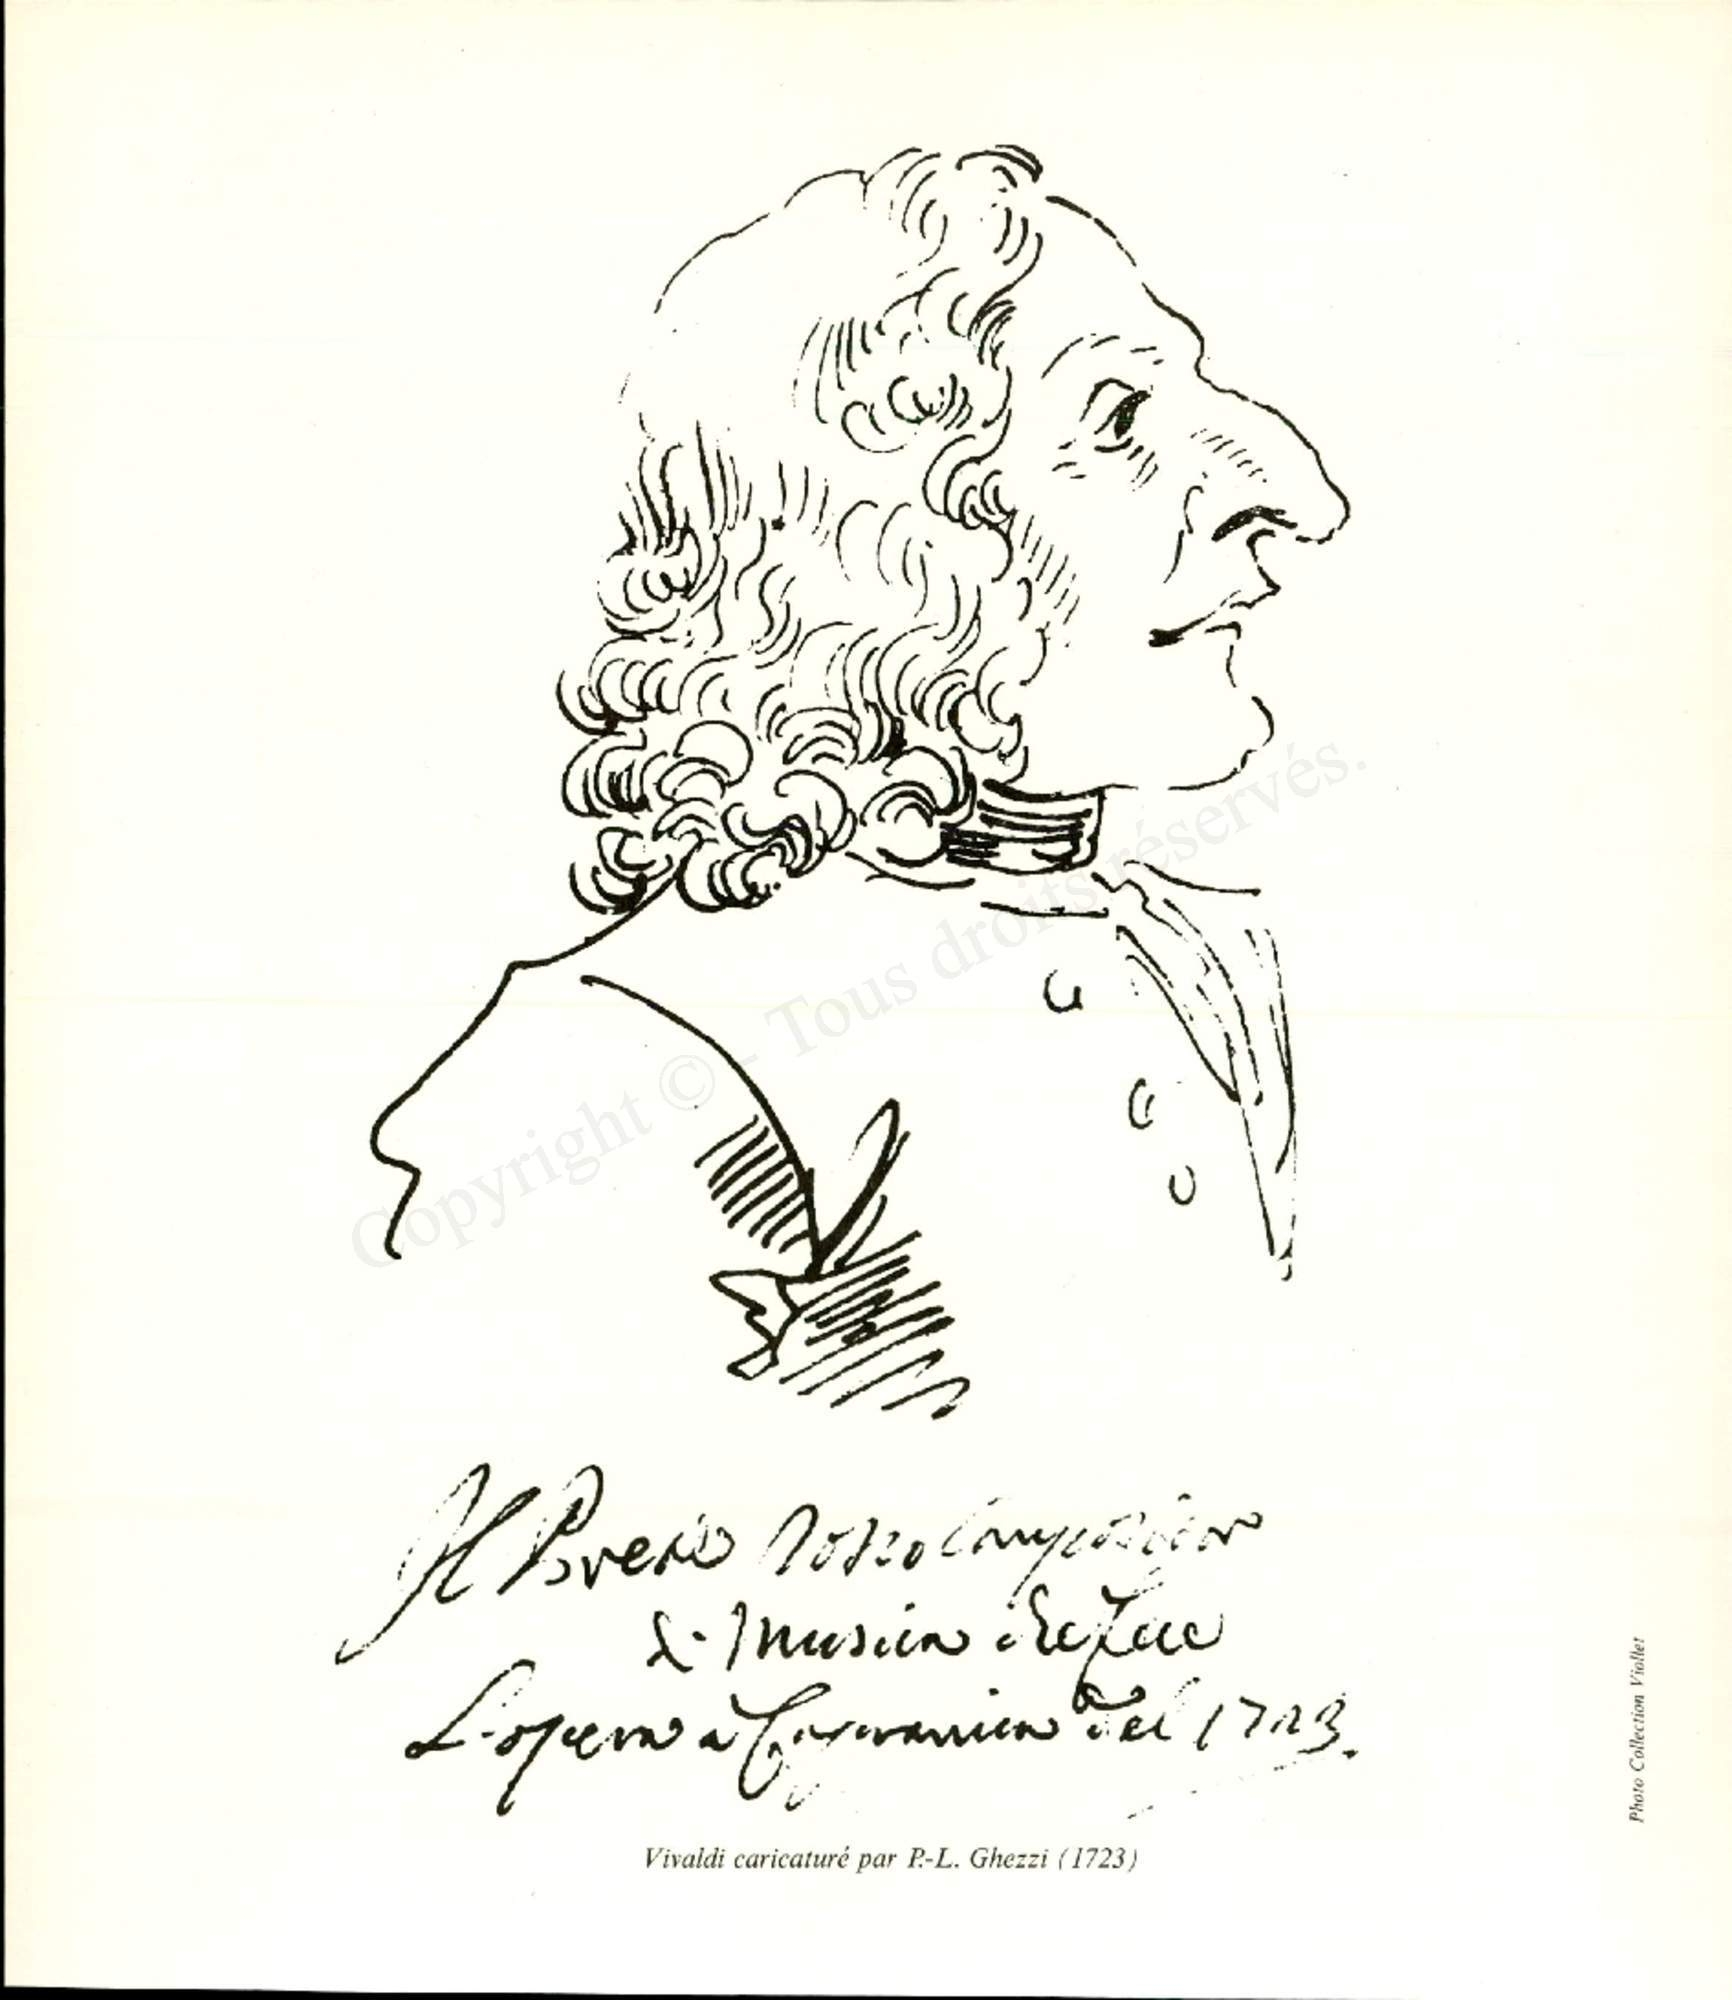 Il Prete rosso Compositor
di Musica che fece
L'opera a Capranica del 1723.
Vivaldi caricaturé par P.-L. Ghezzi (1723)
Photo Collection Viollet
Copyright © - Tous droits réservés.